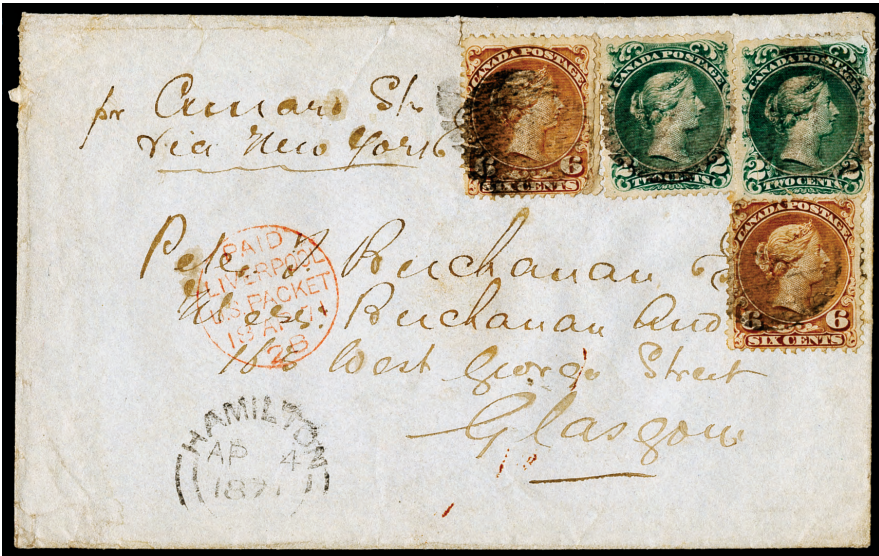 pr Cunard Str
via New York
CANADA POSTAGE
6 6
SIX CENTS
CANADA POSTAGE
2 2
TWO CENTS
CANADA POSTAGE
2 2
TWO CENTS
CANADA POSTAGE
6 6
SIX CENTS
PAID
LIVERPOOL
U.S. PACKET
28
Peter Buchanan
Messrs. Buchanan
West George Street
Glasgow
HAMILTON
AP 4
1871